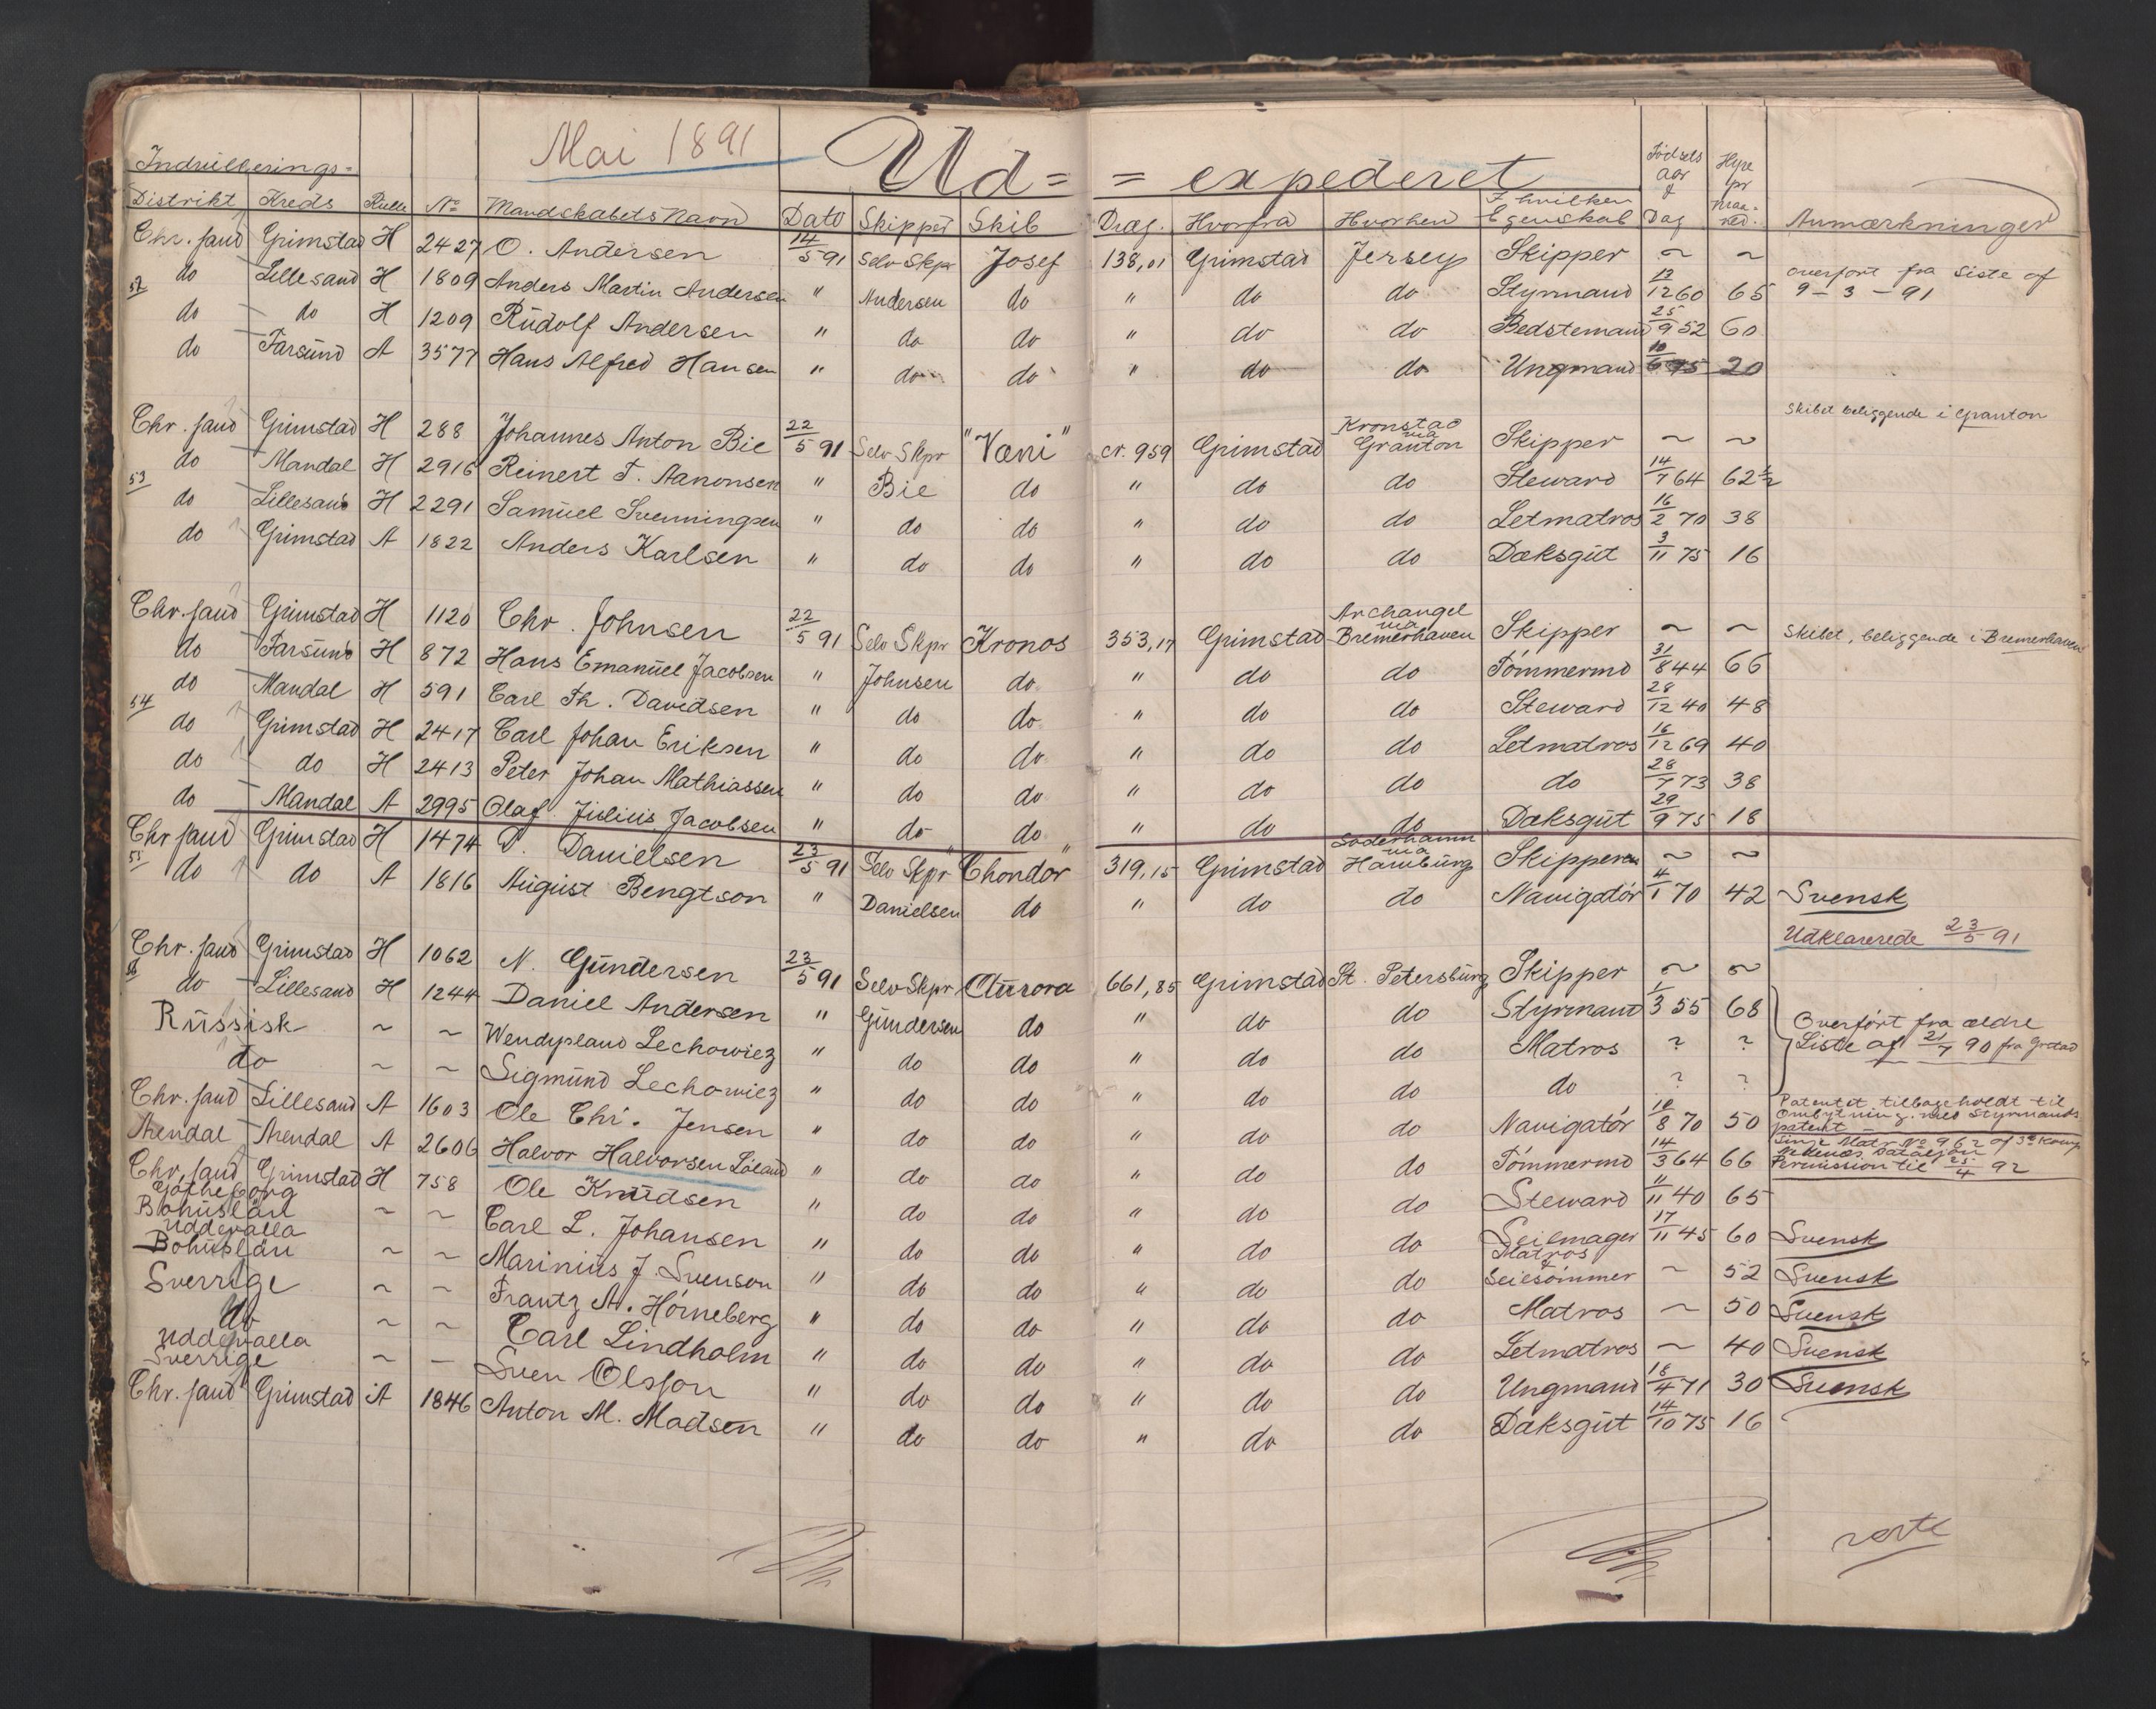 Mai 1891
Ud= = expederet
Indrullerings=
Distrikt Kreds Rulle No Mandskabets Navn Dato Skipper Skib Dræg. Hvorfra Hvorhen I hvilken Egenskab Fødsels aar & Dag Hyre pr Maaned. Anmærkninger
Chr. sand Grimstad H 2427 O. Andersen 14/5 91 Selv Skpr Josef 138,01 Grimstad Jersey Skipper ~ ~
52 do Lillesand H 1809 Anders Martin Andersen " Andersen do " do do Styrmand 13/12 60 65 overført fra Liste af 9-3-91
do do H 1209 Rudolf Andersen " do do " do do Bedstemand 25/9 52 60
do Farsund A 3577 Hans Alfred Hansen " do do " do do Ungmand 10/6 75 20
Skibet beliggende i Granton
Chr. sand Grimstad H 288 Johannes Anton Bie 22/5 91 Selv Skpr "Væni" cr. 959 Grimstad Kronstad via Granton Skipper ~ ~
53 do Mandal H 2916 Reinert T. Aanonsen " Bie do " do do Steward 14/7 64 62½
do Lillesand H 2291 Samuel Svenningsen " do do " do do Letmatros 16/2 70 38
do Grimstad A 1822 Anders Karlsen " do do " do do Dæksgut 3/11 75 16
Chr. sand Grimstad H 1120 Chr. Johnsen 22/5 91 Selv Skpr Kronos 353,17 Grimstad Archangel via Bremerhaven Skipper ~ ~ Skibet, beliggende i Bremerhaven
do Farsund H 872 Hans Emanuel Jacobsen " Johnsen do " do do Tømmermd 31/8 44 66
do Mandal H 591 Carl Th. Davidsen " do do " do do Steward 28/12 40 48
54 do Grimstad H 2417 Carl Johan Eriksen " do do " do do Letmatros 16/12 69 40
do do H 2413 Peter Johan Mathiassen " do do " do do do 28/7 73 38
do Mandal A 2995 Olaf Julius Jacobsen " do do " do do Dæksgut 29/9 75 18
Chr sand Grimstad H 1474 D. Danielsen 23/5 91 Selv Skpr "Chondor" 319,15 Grimstad Søderhamn via Hamburg Skipperen ~ ~
55 do do A 1816 August Bengtson " Danielsen do " do do Navigatør 4/1 70 42 Svensk
Udklarerede 23/5 91
Chr. sand Grimstad H 1062 N. Gundersen 23/5 91 Selv Skpr Aurora 661,85 Grimstad St. Petersburg Skipper ~ ~
56 do Lillesand H 1244 Daniel Andersen " Gundersen do " do do Styrmand 1/3 55 68
Russisk ~ ~ Wendysland Lechowiez " do do " do do Matros ? ? Overført fra ældre Liste af 21/7 90 fra Grstad
do ~ ~ Sigmund Lechowiez " do do " do do do ? ?
Chr. sand Lillesand A 1603 Ole Chr. Jensen " do do " do do Navigatør 10/8 70 50 Patentet tilbageholdt til Ombytning med Styrmands patent
Arendal Arendal A 2606 Halvor Halvorsen Løland " do do " do do Tømmermd 14/3 64 66 Linje Matr No 962 af 3die Komp Nedenes Bataljon Permission til 25/4 92
Chr. sand Grimstad H 758 Ole Knudsen " do do " do do Steward 11/11 40 65
Gøtheborg Bohuslän ~ ~ Carl L. Johansen " do do " do do Seilmager 17/11 45 60 Svensk
Uddevalla Bohuslän ~ ~ Marinius J. Svenson " do do " do do Matros & Seilsømmer ~ 52 Svensk
Sverrige ~ ~ Frantz A. Hörneberg " do do " do do Matros ~ 50 Svensk
do ~ ~ Carl Lindholm " do do " do do Letmatros ~ 40 Svensk
Uddevalla Sverrige ~ ~ Sven Olsson " do do " do do Ungmand 18/4 71 30 Svensk
Chr. sand Grimstad A 1846 Anton M. Madsen " do do " do do Dæksgut 14/10 75 16
verte